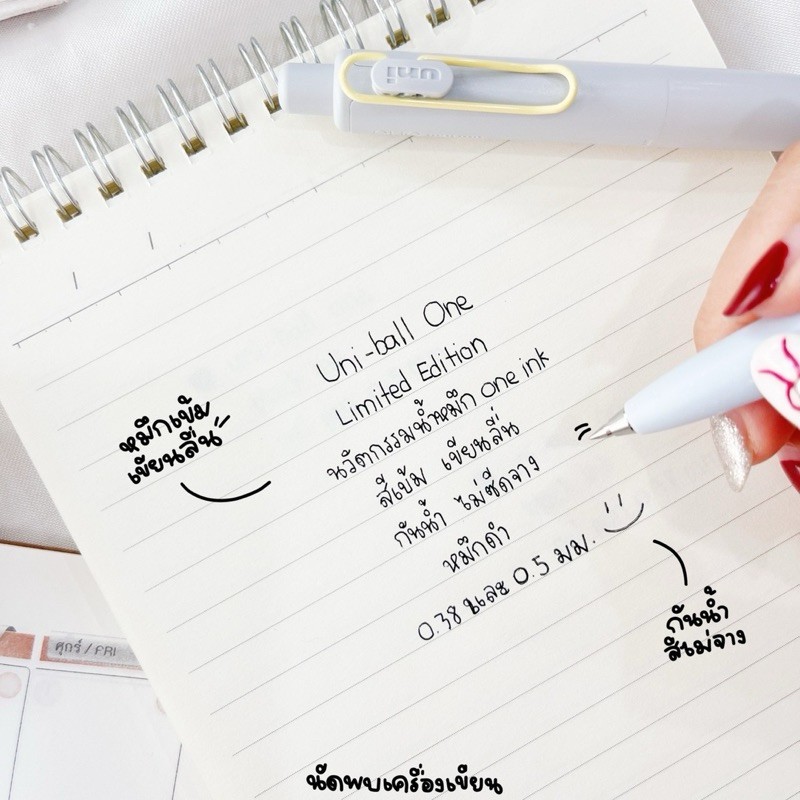 uni
Uni-ball One
Limited Edition
นวัตกรรมน้ำหมึก one ink
สีเข้ม เขียนลื่น
กันน้ำ ไม่ซีดจาง
หมึกดำ
0.38 และ 0.5 มม.
หมึกเข้ม
เขียนลื่น
กันน้ำ
สีไม่จาง
ศุกร์ / FRI
นัดพบเครื่องเขียน